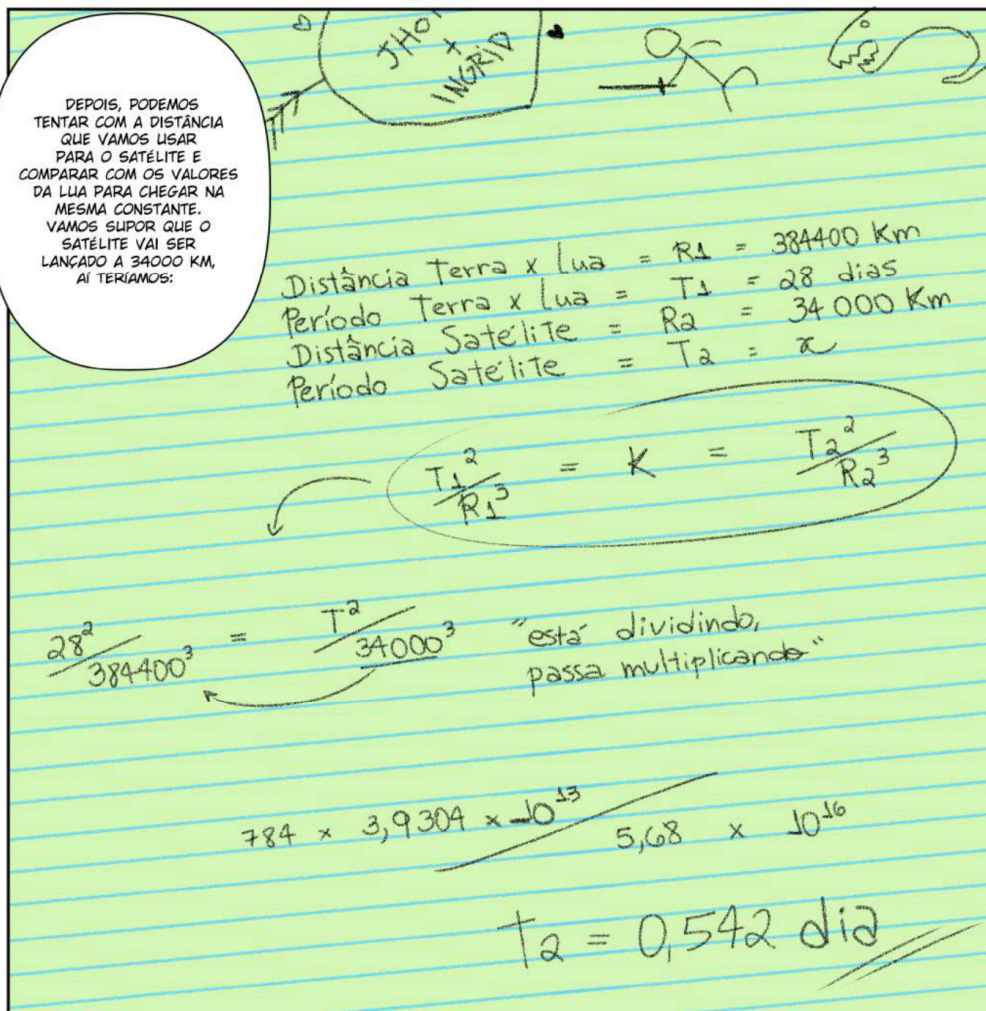 JHO
+
INGRID
DEPOIS, PODEMOS
TENTAR COM A DISTÂNCIA
QUE VAMOS USAR
PARA O SATÉLITE E
COMPARAR COM OS VALORES
DA LUA PARA CHEGAR NA
MESMA CONSTANTE.
VAMOS SUPOR QUE O
SATÉLITE VAI SER
LANÇADO A 34000 KM,
AÍ TERÍAMOS:
Distância Terra x Lua = R1 = 384400 Km
Período Terra x Lua = T1 = 28 dias
Distância Satélite = R2 = 34 000 Km
Período Satélite = T2 = x
T1²/R1³ = K = T2²/R2³
28²/384400³ = T²/34000³ "está dividindo,
passa multiplicando"
784 x 3,9304 x 10¹³ / 5,68 x 10¹⁶
T2 = 0,542 dia